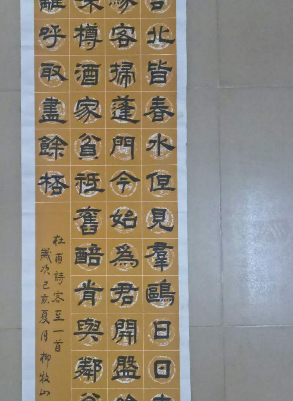 舍北皆春水但見羣鷗日日來
緣客掃蓬門今始爲君開盤飧
味樽酒家貧祇舊醅肯與鄰翁
籬呼取盡餘桮
杜甫詩客至一首
歲次己亥夏月柳牧山